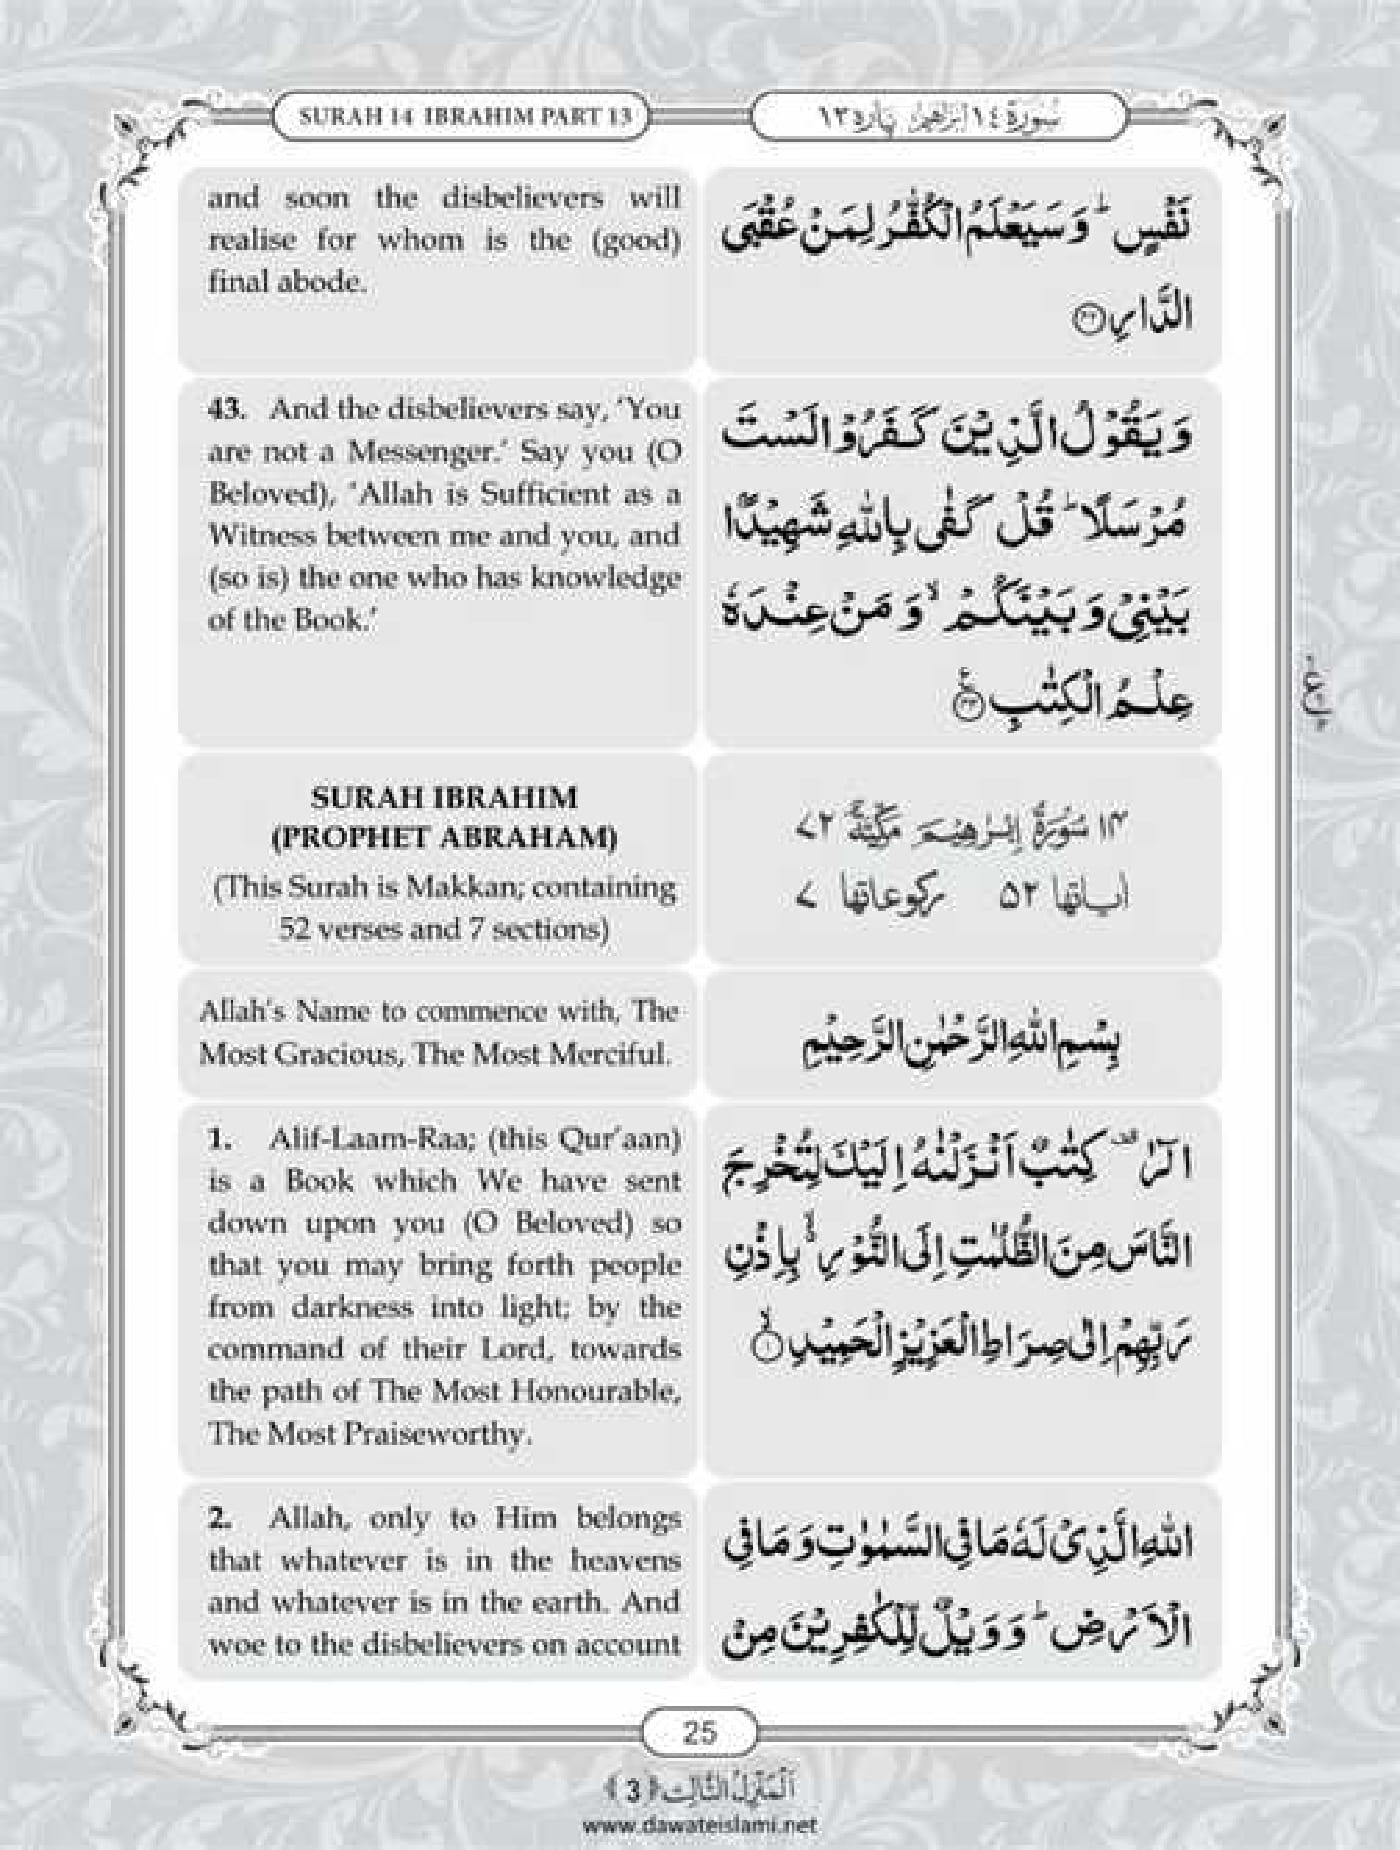 SURAH 14 IBRAHIM PART 13
سُورَة ١٤ اِبْرَاهِيْم پاره ١٣
and soon the disbelievers will
realise for whom is the (good)
final abode.
نَفْسٍ ؕ وَ سَيَعْلَمُ الْكُفّٰرُ لِمَنْ عُقْبَى
الدَّارِ ﴿۴۲﴾
43. And the disbelievers say, ‘You
are not a Messenger.’ Say you (O
Beloved), ‘Allah is Sufficient as a
Witness between me and you, and
(so is) the one who has knowledge
of the Book.’
وَ يَقُوْلُ الَّذِيْنَ كَفَرُوْا لَسْتَ
مُرْسَلًا ؕ قُلْ كَفٰى بِاللّٰهِ شَهِيْدًۢا
بَيْنِيْ وَ بَيْنَكُمْ ۙ وَ مَنْ عِنْدَهٗ
عِلْمُ الْكِتٰبِ ﴿۴۳﴾
SURAH IBRAHIM
(PROPHET ABRAHAM)
(This Surah is Makkan; containing
52 verses and 7 sections)
۱۴ سُوْرَةُ اِبْرٰهِيْمَ مَكِّيَّةٌ ۷۲
اٰیاتها ۵۲ ركوعاتها ۷
Allah’s Name to commence with, The
Most Gracious, The Most Merciful.
بِسْمِ اللّٰهِ الرَّحْمٰنِ الرَّحِيْمِ
1. Alif-Laam-Raa; (this Qur’aan)
is a Book which We have sent
down upon you (O Beloved) so
that you may bring forth people
from darkness into light; by the
command of their Lord, towards
the path of The Most Honourable,
The Most Praiseworthy.
الٓرٰ ۟ كِتٰبٌ اَنْزَلْنٰهُ اِلَيْكَ لِتُخْرِجَ
النَّاسَ مِنَ الظُّلُمٰتِ اِلَى النُّوْرِ ۙ۬ بِاِذْنِ
رَبِّهِمْ اِلٰى صِرَاطِ الْعَزِيْزِ الْحَمِيْدِ ۙ﴿۱﴾
2. Allah, only to Him belongs
that whatever is in the heavens
and whatever is in the earth. And
woe to the disbelievers on account
اللّٰهِ الَّذِيْ لَهٗ مَا فِي السَّمٰوٰتِ وَ مَا فِي
الْاَرْضِ ؕ وَ وَيْلٌ لِّلْكٰفِرِيْنَ مِنْ
25
اَلْمَنْزِلُ الثَّالِث ﴿3﴾
www.dawateislami.net